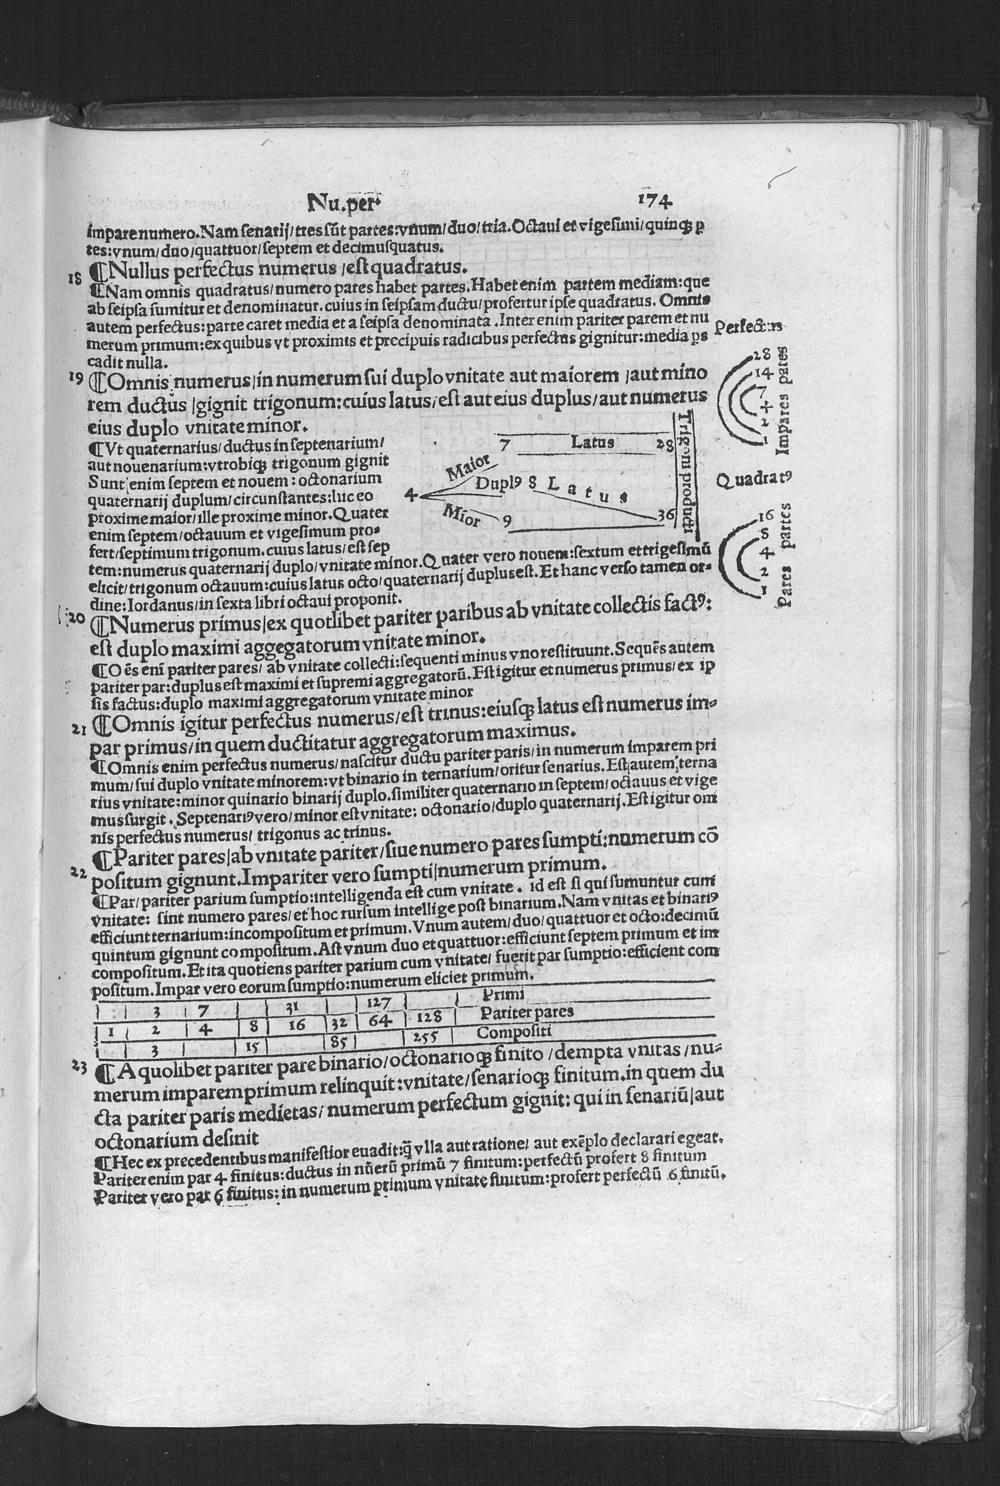 Nu.perᵗ 174
impare numero. Nam senarij/ tres sūt partes: vnum/ duo/ tria. Octaui et vigesimi/ quinqꝫ p
tes: vnum/ duo/ quattuor/ septem et decimusquatus.
18 ¶Nullus perfectus numerus /est quadratus.
¶Nam omnis quadratus/ numero pares habet partes. Habet enim partem mediam: que
ab seipsa sumitur et denominatur. cuius in seipsam ductu/ profertur ipse quadratus. Omnis
autem perfectus: parte caret media et a seipsa denominata. Inter enim pariter parem et nu
merum primum: ex quibus vt proximis et precipuis radicibus perfectus gignitur: media ps
cadit nulla.
19 ¶Omnis numerus/ in numerum sui duplo vnitate aut maiorem /aut mino
rem ductus /gignit trigonum: cuius latus/ est aut eius duplus/ aut numerus
eius duplo vnitate minor.
¶Vt quaternarius/ ductus in septenarium/
aut nouenarium: vtrobiqꝫ trigonum gignit
Sunt enim septem et nouem: octonarium
quaternarij duplum/ circunstantes: hic eo
proxime maior/ ille proxime minor. Quater
enim septem/ octauum et vigesimum pro-
fert/ septimum trigonum. cuius latus/ est sep
tem: numerus quaternarij duplo/ vnitate minor. Quater vero nouem: sextum et trigesimū
elicit/ trigonum octauum: cuius latus octo/ quaternarij duplus est. Et hanc verso tamen or-
dine: Iordanus/ in sexta libri octaui proponit.
7 Latus 28
Maior
4 Duplꝰ 8 Latus
Mior 9 36
Trigoni producti
Perfectus
28
14
7
4
2
1
Impares partes
Quadratꝰ
16
8
4
2
1
Pares partes
20 ¶Numerus primus/ ex quotlibet pariter paribus ab vnitate collectis factꝰ:
est duplo maximi aggegatorum vnitate minor.
¶Oēs eni pariter pares/ ab vnitate collecti: sequenti minus vno restituunt. Sequēs autem
pariter par: duplus est maximi et supremi aggregatorū. Est igitur et numerus primus/ ex ip
sis factus: duplo maximi aggregatorum vnitate minor
21 ¶Omnis igitur perfectus numerus/ est trinus: eiusqꝫ latus est numerus im-
par primus/ in quem ductitatur aggregatorum maximus.
¶Omnis enim perfectus numerus/ nascitur ductu pariter paris/ in numerum imparem pri
mum/ sui duplo vnitate minorem: vt binario in ternarium/ oritur senarius. Est autem terna
rius vnitate: minor quinario binarij duplo. similiter quaternario in septem/ octauus et vige
mus surgit. Septenariꝰ vero/ minor est vnitate: octonario/ duplo quaternarij. Est igitur om
nis perfectus numerus/ trigonus ac trinus.
22 ¶Pariter pares/ ab vnitate pariter/ siue numero pares sumpti: numerum cō
positum gignunt. Impariter vero sumpti/ numerum primum.
¶Par/ pariter parium sumptio: intelligenda est cum vnitate. id est si qui sumuntur cum
vnitate: sint numero pares/ et hoc rursum intellige post binarium. Nam vnitas et binariꝰ
efficiunt ternarium: incompositum et primum. Vnum autem/ duo/ quattuor et octo: decimū
quintum gignunt compositum. Ast vnum duo et quattuor: efficiunt septem primum et im
compositum. Et ita quotiens pariter parium cum vnitate/ fuerit par sumptio: efficient com
positum. Impar vero eorum sumptio: numerum eliciet primum.
3 7 31 127 Primi
1 2 4 8 16 32 64 128 Pariter pares
3 15 85 255 Compositi
23 ¶A quolibet pariter pare binario/ octonarioqꝫ finito /dempta vnitas /nu-
merum imparem primum relinquit: vnitate/ senarioqꝫ finitum. in quem du
cta pariter paris medietas/ numerum perfectum gignit: qui in senariū/ aut
octonarium desinit
¶Hec ex precedentibus manifestior euadit: q̄ vlla aut ratione/ aut exēplo declarari egeat.
Pariter enim par 4 finitus: ductus in nūerū primū 7 finitum: perfectū profert 8 finitum
Pariter vero par 6 finitus: in numerum primum vnitate finitum: profert perfectū 6 finitū.